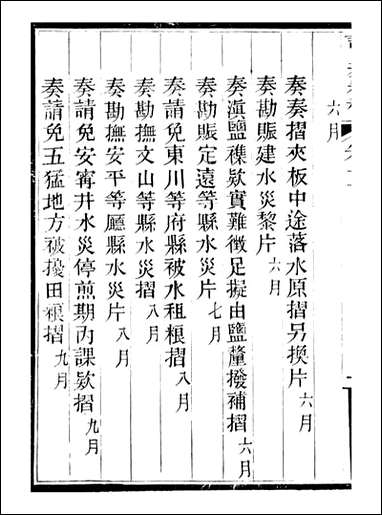 六月
奏奏摺夾板中途落水原摺另換片六月
奏勘賑建水災黎片六月
奏滇鹽襍欵實難徵足擬由鹽釐撥補摺六月
奏勘賑定遠等縣水災片七月
奏請免東川等府縣被水租粮摺八月
奏勘撫文山等縣水災摺八月
奏勘撫安平等廳縣水災片八月
奏請免安寗井水災停煎期內課欵摺九月
奏請免五猛地方被擾田粮摺九月